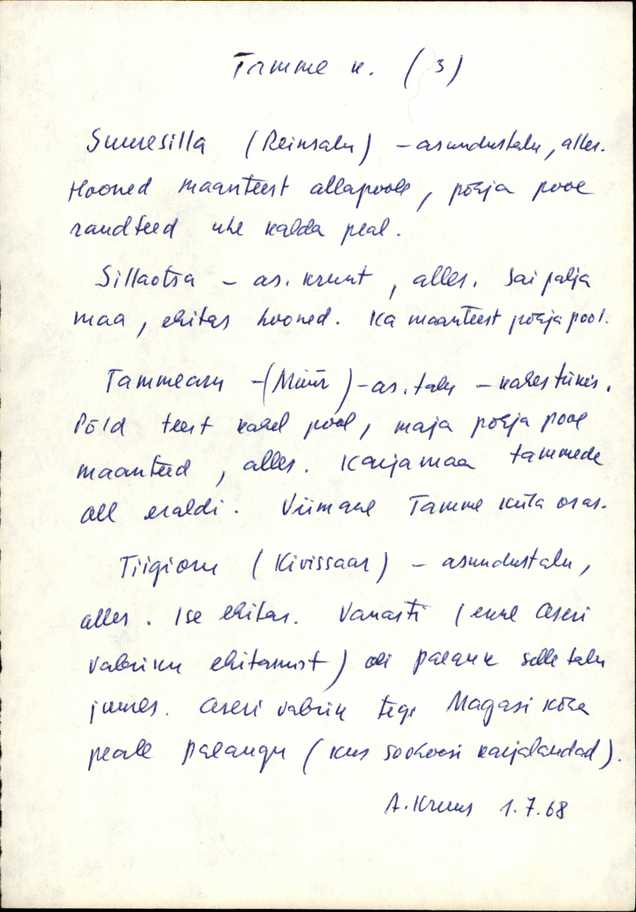 Tamme k. (3)
Suuresilla (Reinsalu) – asundustalu, alles.
Hooned maanteest allapoole, põhja pool
randteed uhe kalda peal.
Sillaotsa – as. krunt, alles. Sai palja
maa, ehitas hooned. Ka maanteest põhja pool.
Tammearu – (Müür) – as. talu – kahes tükis.
Põld teest kahel pool, maja põhja pool
maanteed, alles. Karjamaa tammede
all eraldi. Viimane Tamme küla osas.
Tiigioru (Kivissaar) – asundustalu,
alles. Ise ehitas. Vanasti (enne Aseri
vabriku ehitamist) oli palank selle talu
juures. Aseri vabrik tegi Magasi kõla
peale palangu (kus sovhoosi karjalaudad).
A. Kruus 1.7.68